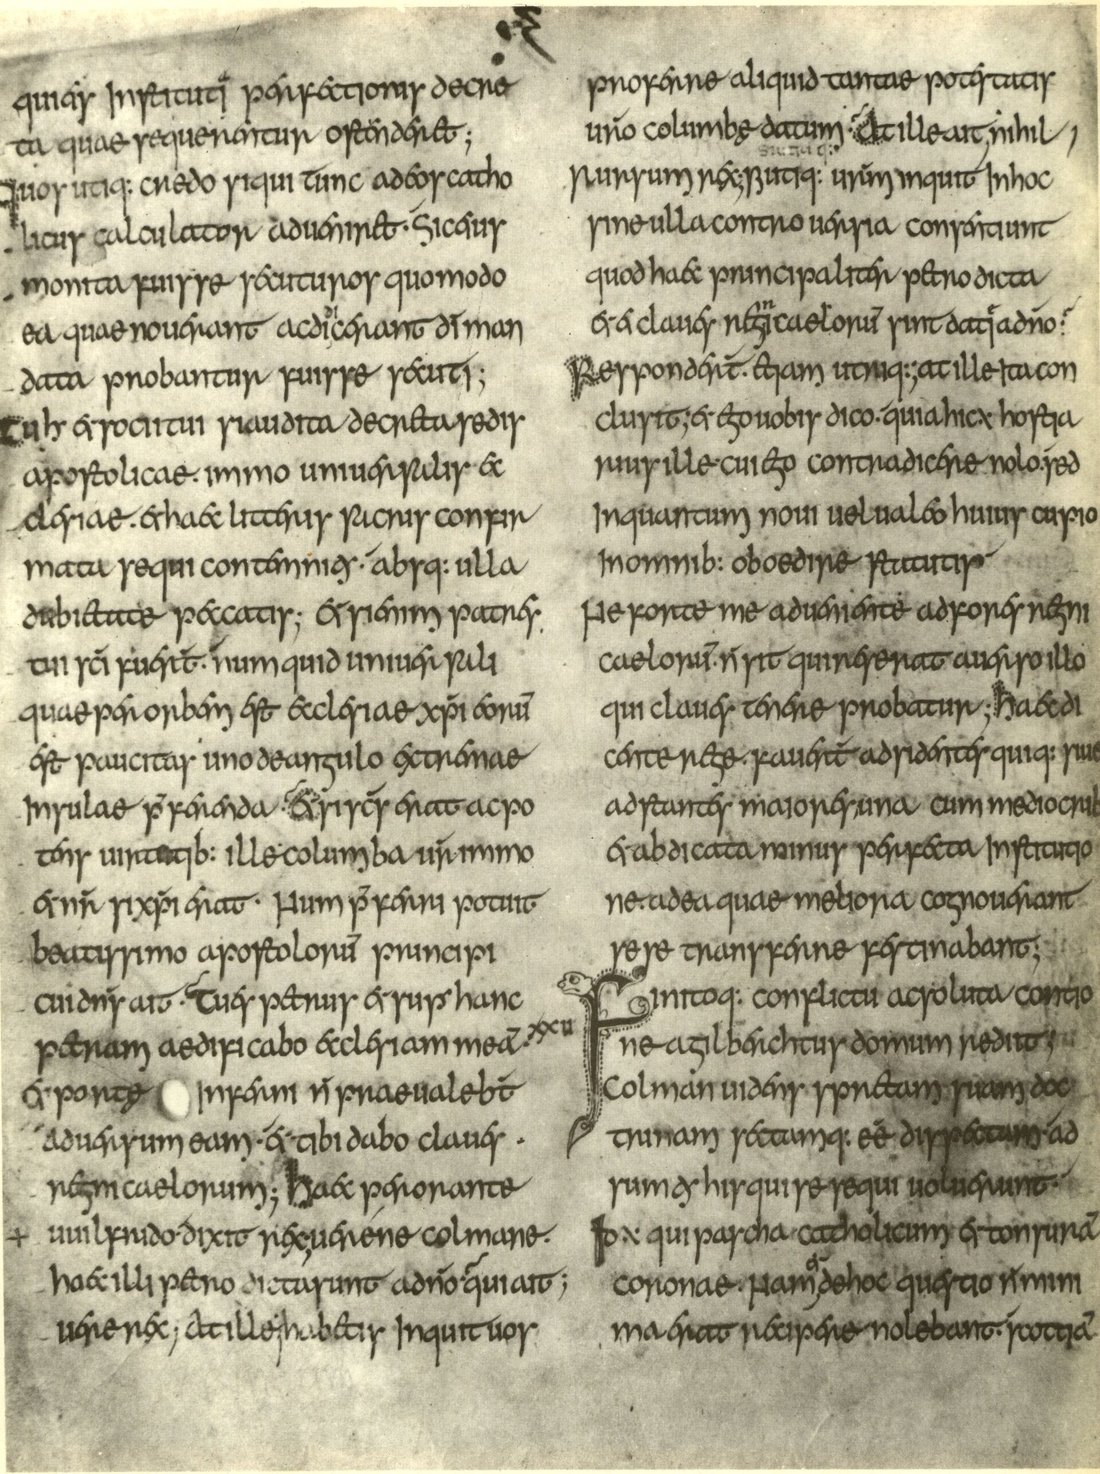 quiaeis instituti perfectionis decre
ta quae sequerentur ostenderet;
Quos utiq: credo siqui tunc ad eos catho
licus calculator aduenisset· Sic eius
monita fuisse secuturos quomodo
ea quae nouerant ac didicerant dī man
data probantur fuisse secuti;
Tu h̄ et socii tui si audita decreta sedis
apostolicae· immo uniuersalis ec
clesiae· et haec litteris sacris confir
mata sequi contemnitis· absq: ulla
dubietate peccatis; Et si enim patres
tui sc̄i fuer̄· num quid uniuersali
quae per orbem est ecclesiae xp̄i eorū
est paucitas uno de angulo extremae
insulae p̄ferenda· Et si sc̄s erat ac po
tens uirtutib: ille columba ur̄ immo
et nr̄ si xp̄i erat· Num p̄ferri potuit
beatissimo apostolorū principi
cui dn̄s ait· Tu es petrus et sup̄ hanc
petram aedificabo ecclesiam meā·
xxui
et porte inferni n̄ praeualeb̄t
aduersum eam· et tibi dabo claues·
regni caelorum; Haec perorante
uuilfrido· dixit rex; uerene colmane·
haec illi petro dicta sunt a dn̄o· qui ait;
uere rex; At ille; habetis inquit uos
proferre aliquid tantae potestatis
ur̄o columbe datum· At ille ait, nihil
Rursum rex; Si utiq: urm̄ inquit in hoc
sine ulla controuersia consentiunt
quod haec principaliter petro dicta
et ei claues regni caelorū sint dati a dn̄o·
Responder̄t· etiam utriq:; at ille ita con
clusit; et ego uobis dico· quia hic ÷ hostia
rius ille· cui ego contradicere nolo· sed
inquantum noui uel ualeo huius cupio
in omnib: oboedire statutis
Ne forte me adueniente ad fores regni
caelorū· n̄ sit qui reserat auerso illo
qui claues tenere probatur; Haec di
cente rege· fauer̄t adsidentes quiq: siue
adstantes maiores; una cum mediocrib
et abdicata minus perfecta institutio
ne· ad ea quae meliora cognouerant
sese transferre festinabant;
Finitoq: conflictu ac soluta contio
ne· agilberichtus domum rediit;
Colman uidens spretam suam doc
trinam sectamq: eē dispectam· ad
sumtis his qui se sequi uoluerunt·
id ÷ qui pascha catholicum et tonsurā
coronae· Nam de hoc questio n̄ mini
ma erat recipere nolebant· scottiā